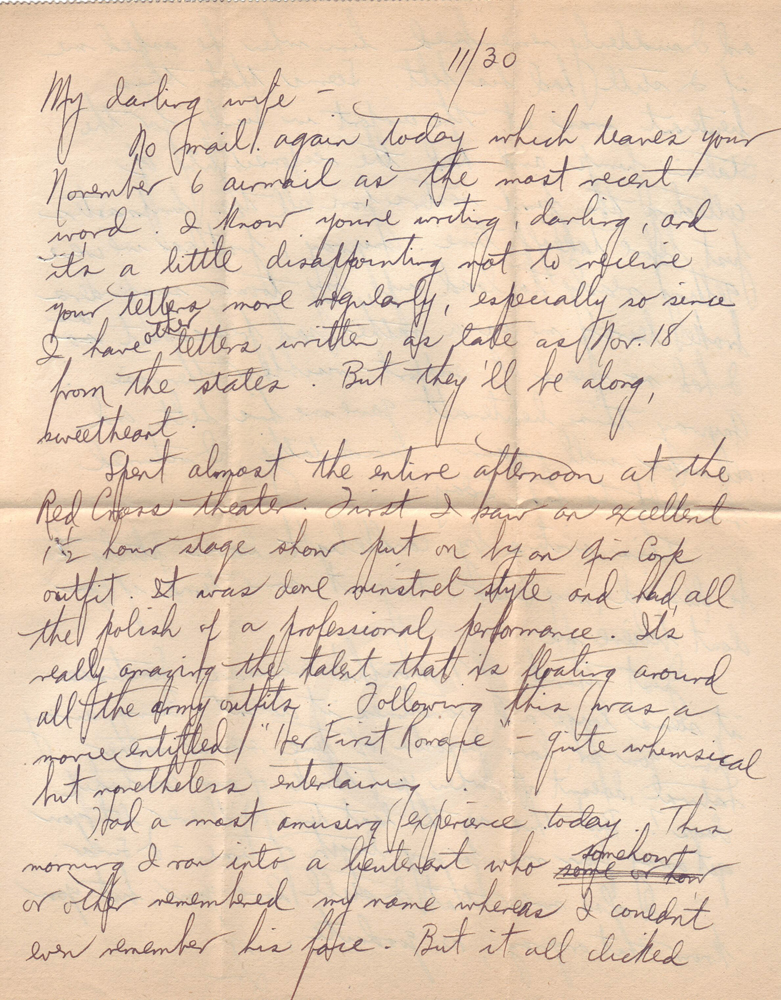 11/30
My darling wife -
No mail again today which leaves your
November 6 airmail as the most recent
word. I know you're writing, darling, and
it's a little disappointing not to receive
your letters more regularly, especially so since
I have other letters written as late as Nov. 18
from the states. But they'll be along,
sweetheart.
Spent almost the entire afternoon at the
Red Cross theater. First I saw an excellent
1 1/2 hour stage show put on by an Air Corp
outfit. It was done minstrel style and had all
the polish of a professional performance. It's
really amazing the talent that is floating around
all the army outfits. Following this was a
movie entitled "Her First Romance" - quite whimsical
but nonetheless entertaining.
Had a most amusing experience today. This
morning I ran into a lieutenant who some or how somehow
or other remembered my name whereas I couldn't
even remember his face. But it all clicked